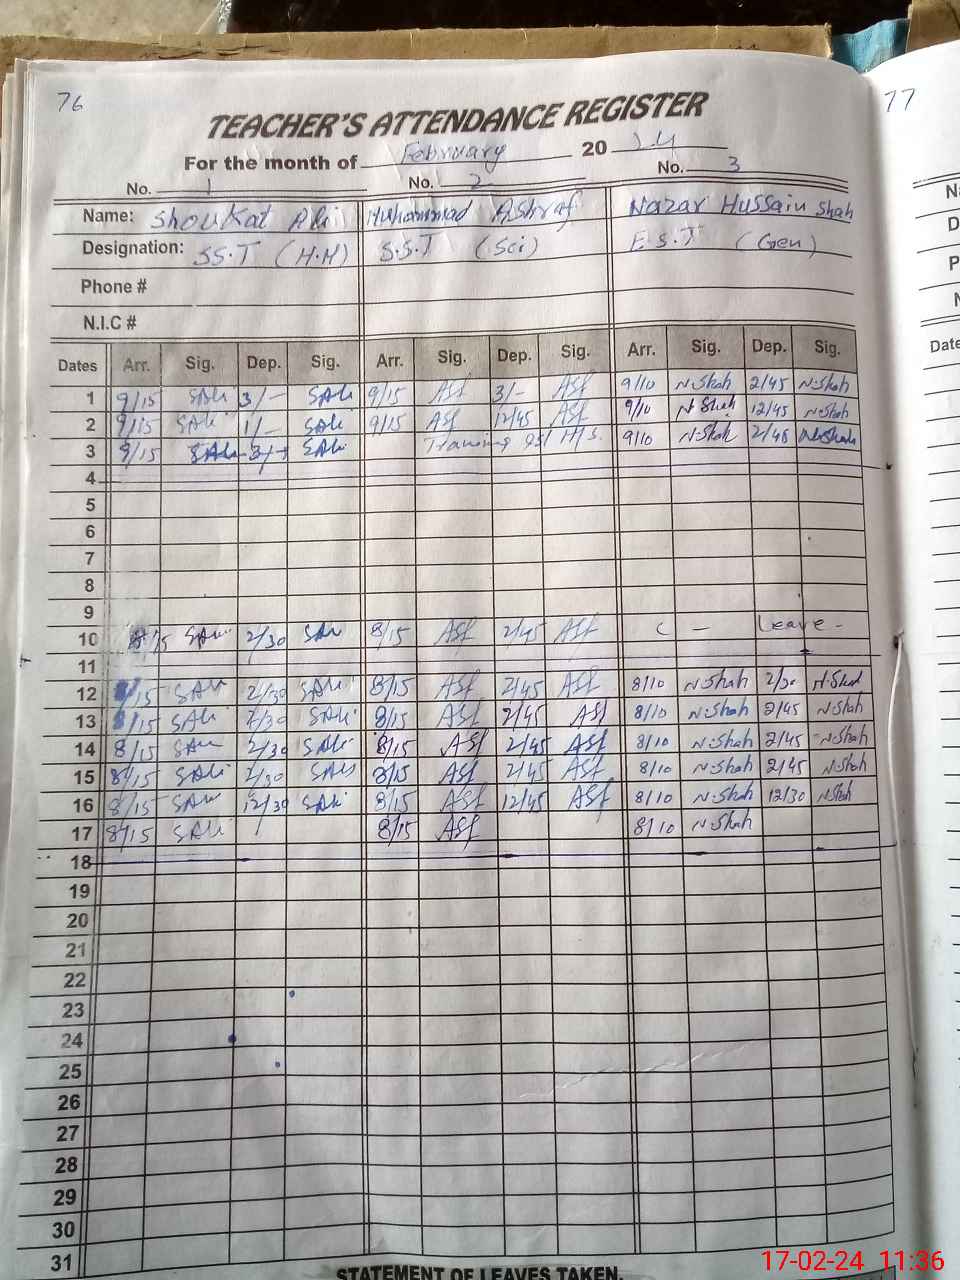 76
77
TEACHER'S ATTENDANCE REGISTER
For the month of February 20 24
No. 1 No. 2 No. 3
Name: Shoukat Ali Muhammad Ashraf Nazar Hussain Shah
Designation: S.S.T (H.M) S.S.T (Sci) E.S.T (Gen)
Phone #
N.I.C #
Dates Arr. Sig. Dep. Sig. Arr. Sig. Dep. Sig. Arr. Sig. Dep. Sig.
Date
1 9/15 SAli 3/- SAli 9/15 Asf 3/- Asf 9/10 N.Shah 2/45 N.Shah
2 9/15 SAli 1/- SAli 9/15 Asf 12/45 Asf 9/10 N.Shah 12/45 N.Shah
3 9/15 SAli 3/- SAli Training 9/10 N.Shah 2/45 N.Shah
4
5
6
7
8
9
10 8/15 SAli 2/30 SAli 8/15 Asf 2/45 Asf C - Leave -
11
12 8/15 SAli 2/30 SAli 8/15 Asf 2/45 Asf 8/10 N.Shah 2/30 N.Shah
13 8/15 SAli 2/30 SAli 8/15 Asf 2/45 Asf 8/10 N.Shah 2/45 N.Shah
14 8/15 SAli 2/30 SAli 8/15 Asf 2/45 Asf 8/10 N.Shah 2/45 N.Shah
15 8/15 SAli 2/30 SAli 8/15 Asf 2/45 Asf 8/10 N.Shah 2/45 N.Shah
16 8/15 SAli 12/30 SAli 8/15 Asf 12/45 Asf 8/10 N.Shah 12/30 N.Shah
17 8/15 SAli 8/15 Asf 8/10 N.Shah
18
19
20
21
22
23
24
25
26
27
28
29
30
31
STATEMENT OF LEAVES TAKEN.
17-02-24 11:36